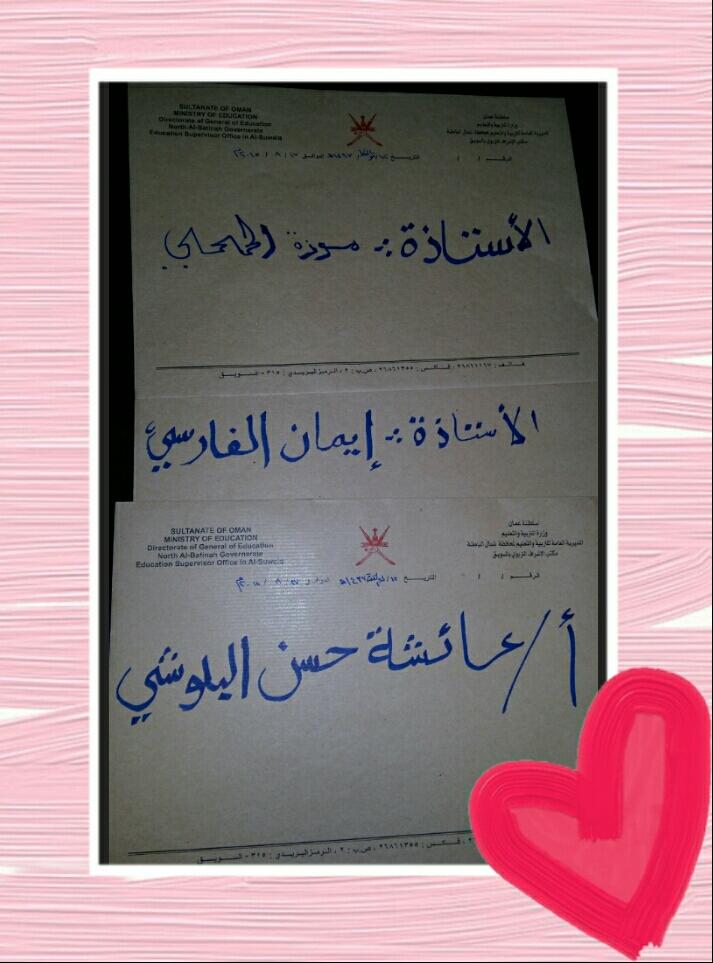 SULTANATE OF OMAN
MINISTRY OF EDUCATION
Directorate of General of Education
North Al-Batinah Governorate
Education Supervisor Office in Al-Suwaiq
سلطنة عمان
وزارة التربية والتعليم
المديرية العامة للتربية والتعليم لمحافظة شمال الباطنة
مكتب الإشراف التربوي بالسويق
الرقم : / /
التاريخ
الموافق
الأستاذة :- موزة
هاتف : ٢٦٨٦١١٦٧ ، فاكس : ٢٦٨٦١٣٥٥ ، ص.ب : ٢ ، الرمز البريدي : ٣١٥ - السويق
الأستاذة :- إيمان الفارسي
SULTANATE OF OMAN
MINISTRY OF EDUCATION
Directorate of General of Education
North Al-Batinah Governorate
Education Supervisor Office in Al-Suwaiq
سلطنة عمان
وزارة التربية والتعليم
المديرية العامة للتربية والتعليم لمحافظة شمال الباطنة
مكتب الإشراف التربوي بالسويق
الرقم : / /
التاريخ
الموافق
أ/ عائشة حسن البلوشي
فاكس : ٢٦٨٦١٣٥٥ ، ص.ب : ٢ ، الرمز البريدي : ٣١٥ - السويق